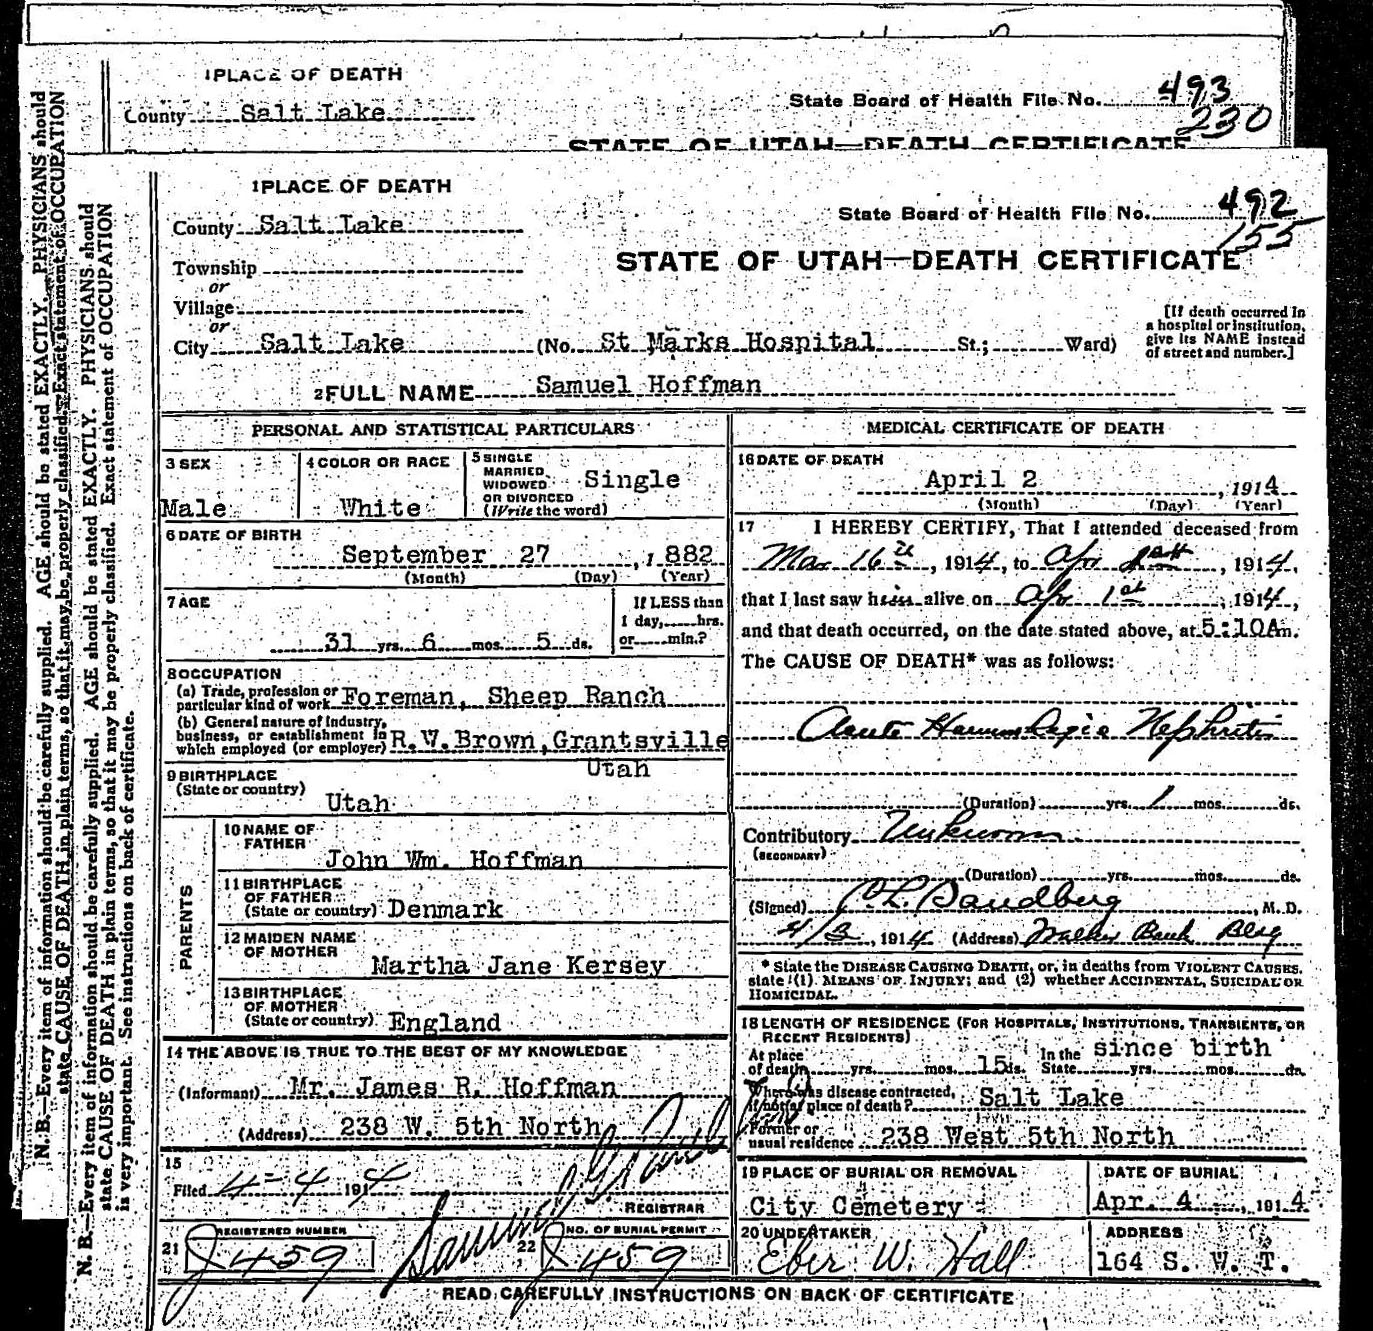 1 PLACE OF DEATH
County Salt Lake
State Board of Health File No. 493
230
STATE OF UTAH—DEATH CERTIFICATE
N. B.—Every item of information should be carefully supplied. AGE should be stated EXACTLY. PHYSICIANS should
state CAUSE OF DEATH in plain terms, so that it may be properly classified. Exact statement of OCCUPATION
N. B.—Every item of information should be carefully supplied. AGE should be stated EXACTLY. PHYSICIANS should
state CAUSE OF DEATH in plain terms, so that it may be properly classified. Exact statement of OCCUPATION
is very important. See instructions on back of certificate.
1 PLACE OF DEATH
County Salt Lake
State Board of Health File No. 492
155
STATE OF UTAH—DEATH CERTIFICATE
Township
or
Village
or
City Salt Lake (No. St Marks Hospital St.; Ward)
[If death occurred in
a hospital or institution,
give its NAME instead
of street and number.]
2 FULL NAME Samuel Hoffman
PERSONAL AND STATISTICAL PARTICULARS
3 SEX
Male
4 COLOR OR RACE
White
5 SINGLE
MARRIED
WIDOWED
OR DIVORCED
(Write the word)
Single
6 DATE OF BIRTH
September 27, 1882
(Month) (Day) (Year)
7 AGE
31 yrs. 6 mos. 5 ds.
If LESS than
1 day, hrs.
or min.?
8 OCCUPATION
(a) Trade, profession or
particular kind of work Foreman, Sheep Ranch
(b) General nature of industry,
business, or establishment in
which employed (or employer) R.W.Brown, Grantsville
Utah
9 BIRTHPLACE
(State or country)
Utah
PARENTS
10 NAME OF
FATHER
John Wm. Hoffman
11 BIRTHPLACE
OF FATHER
(State or country) Denmark
12 MAIDEN NAME
OF MOTHER
Martha Jane Kersey
13 BIRTHPLACE
OF MOTHER
(State or country) England
14 THE ABOVE IS TRUE TO THE BEST OF MY KNOWLEDGE
(Informant) Mr. James R. Hoffman
(Address) 238 W. 5th North
15
Filed 4-4 1914
REGISTRAR
21 REGISTERED NUMBER
J 459
22 NO. OF BURIAL PERMIT
J 459
MEDICAL CERTIFICATE OF DEATH
16 DATE OF DEATH
April 2, 1914
(Month) (Day) (Year)
17 I HEREBY CERTIFY, That I attended deceased from
Mar 16th, 1914, to Apr 1st, 1914,
that I last saw him alive on Apr 1st, 1914,
and that death occurred, on the date stated above, at 5:10A m.
The CAUSE OF DEATH* was as follows:
Acute Hemorrhagic Nephritis
(Duration) yrs. 1 mos. ds.
Contributory Unknown
(SECONDARY)
(Duration) yrs. mos. ds.
(Signed) Sandberg, M. D.
4/3, 1914 (Address) Walker Bank Bldg
* State the DISEASE CAUSING DEATH, or, in deaths from VIOLENT CAUSES,
state (1) MEANS OF INJURY; and (2) whether ACCIDENTAL, SUICIDAL OR
HOMICIDAL.
18 LENGTH OF RESIDENCE (FOR HOSPITALS, INSTITUTIONS, TRANSIENTS, OR
RECENT RESIDENTS)
At place
of death yrs. mos. 15 ds. In the
State since birth yrs. mos. ds.
Where was disease contracted,
if not at place of death? Salt Lake
Former or
usual residence 238 West 5th North
19 PLACE OF BURIAL OR REMOVAL
City Cemetery
DATE OF BURIAL
Apr. 4, 1914
20 UNDERTAKER
Eber W. Hall
ADDRESS
164 S. W. T.
READ CAREFULLY INSTRUCTIONS ON BACK OF CERTIFICATE